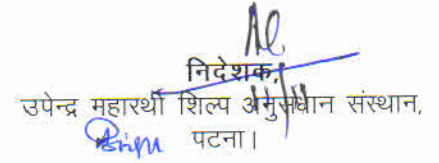 निदेशक,
उपेन्द्र महारथी शिल्प अनुसंधान संस्थान,
पटना।